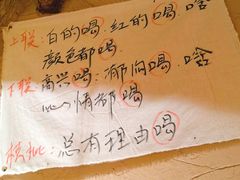 上联：白的喝、红的喝、啥
颜色都喝
下联：高兴喝：郁闷喝、啥
心情都喝
横批：总有理由喝